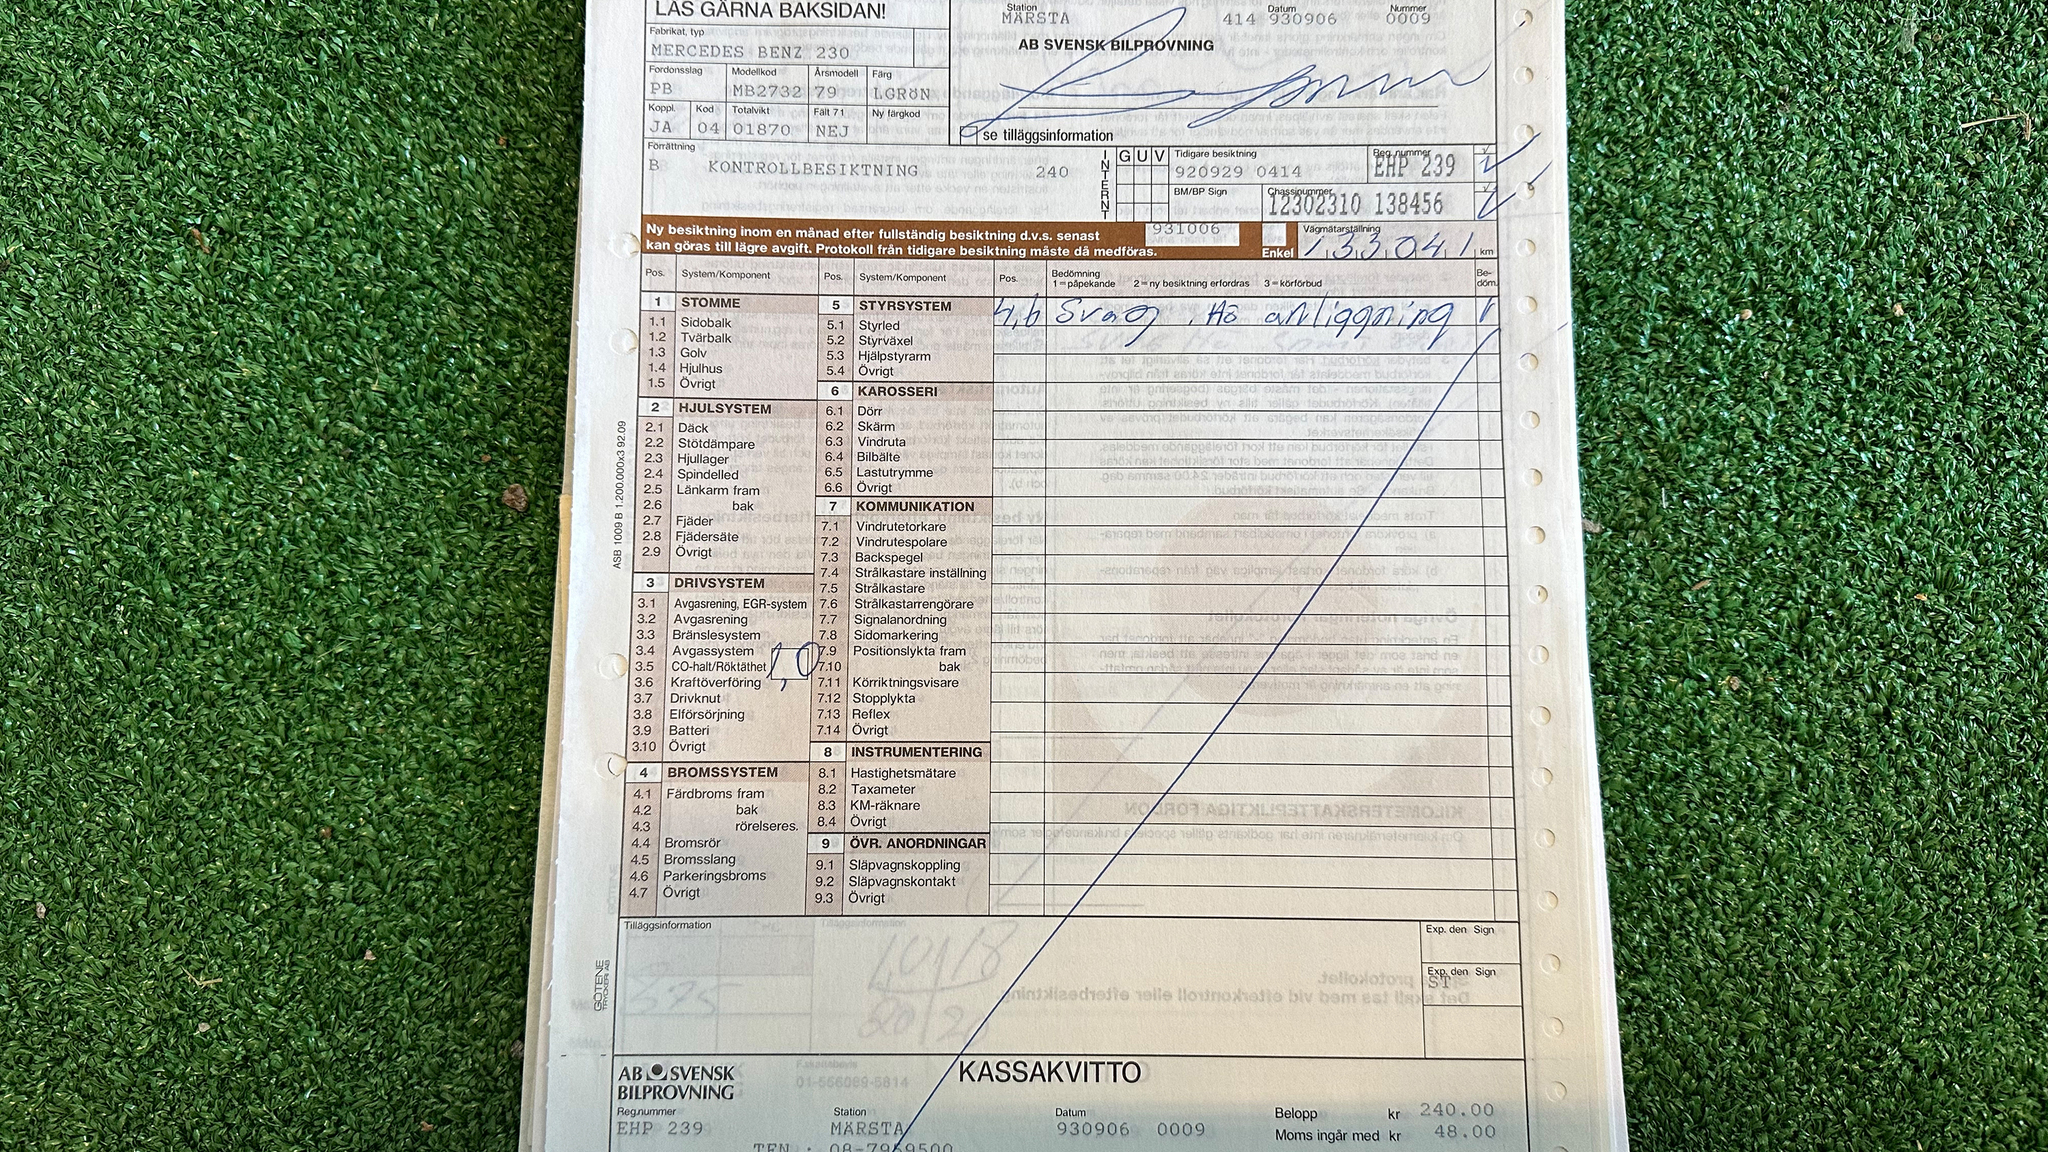 LÄS GÄRNA BAKSIDAN!
Fabrikat, typ
MERCEDES BENZ 230
Fordonsslag Modellkod Årsmodell Färg
PB MB2732 79 LGRÖN
Koppl. Kod Totalvikt Fält 71 Ny färgkod
JA 04 01870 NEJ
Station Datum Nummer
MÄRSTA 414 930906 0009
AB SVENSK BILPROVNING
se tilläggsinformation
Förrättning
B KONTROLLBESIKTNING 240
INTERNT
G U V
Tidigare besiktning
920929 0414
Reg.nummer
EHP 239
BM/BP Sign
Chassinummer
12302310 138456
Ny besiktning inom en månad efter fullständig besiktning d.v.s. senast 931006
kan göras till lägre avgift. Protokoll från tidigare besiktning måste då medföras.
Enkel
Vägmätarställning
133041 km
Pos. System/Komponent Pos. System/Komponent Pos. Bedömning Be-
1 = påpekande 2 = ny besiktning erfordras 3 = körförbud döm.
4,6 Svag Hö anliggning 1
1 STOMME
1.1 Sidobalk
1.2 Tvärbalk
1.3 Golv
1.4 Hjulhus
1.5 Övrigt
2 HJULSYSTEM
2.1 Däck
2.2 Stötdämpare
2.3 Hjullager
2.4 Spindelled
2.5 Länkarm fram
2.6 bak
2.7 Fjäder
2.8 Fjädersäte
2.9 Övrigt
3 DRIVSYSTEM
3.1 Avgasrening, EGR-system
3.2 Avgasrening
3.3 Bränslesystem
3.4 Avgassystem
3.5 CO-halt/Röktäthet 1,0
3.6 Kraftöverföring
3.7 Drivknut
3.8 Elförsörjning
3.9 Batteri
3.10 Övrigt
4 BROMSSYSTEM
4.1 Färdbroms fram
4.2 bak
4.3 rörelseres.
4.4 Bromsrör
4.5 Bromsslang
4.6 Parkeringsbroms
4.7 Övrigt
5 STYRSYSTEM
5.1 Styrled
5.2 Styrväxel
5.3 Hjälpstyrarm
5.4 Övrigt
6 KAROSSERI
6.1 Dörr
6.2 Skärm
6.3 Vindruta
6.4 Bilbälte
6.5 Lastutrymme
6.6 Övrigt
7 KOMMUNIKATION
7.1 Vindrutetorkare
7.2 Vindrutespolare
7.3 Backspegel
7.4 Strålkastare inställning
7.5 Strålkastare
7.6 Strålkastarrengörare
7.7 Signalanordning
7.8 Sidomarkering
7.9 Positionslykta fram
7.10 bak
7.11 Körriktningsvisare
7.12 Stopplykta
7.13 Reflex
7.14 Övrigt
8 INSTRUMENTERING
8.1 Hastighetsmätare
8.2 Taxameter
8.3 KM-räknare
8.4 Övrigt
9 ÖVR. ANORDNINGAR
9.1 Släpvagnskoppling
9.2 Släpvagnskontakt
9.3 Övrigt
ASB 1009 B 1.200.000x3 92.09
GÖTENE
TRYCKERI AB
Tilläggsinformation
Exp. den Sign
Exp. den Sign
ST
AB SVENSK
BILPROVNING
KASSAKVITTO
Reg.nummer Station Datum
EHP 239 MÄRSTA 930906 0009
Belopp kr 240.00
Moms ingår med kr 48.00
TFN : 08-7959500